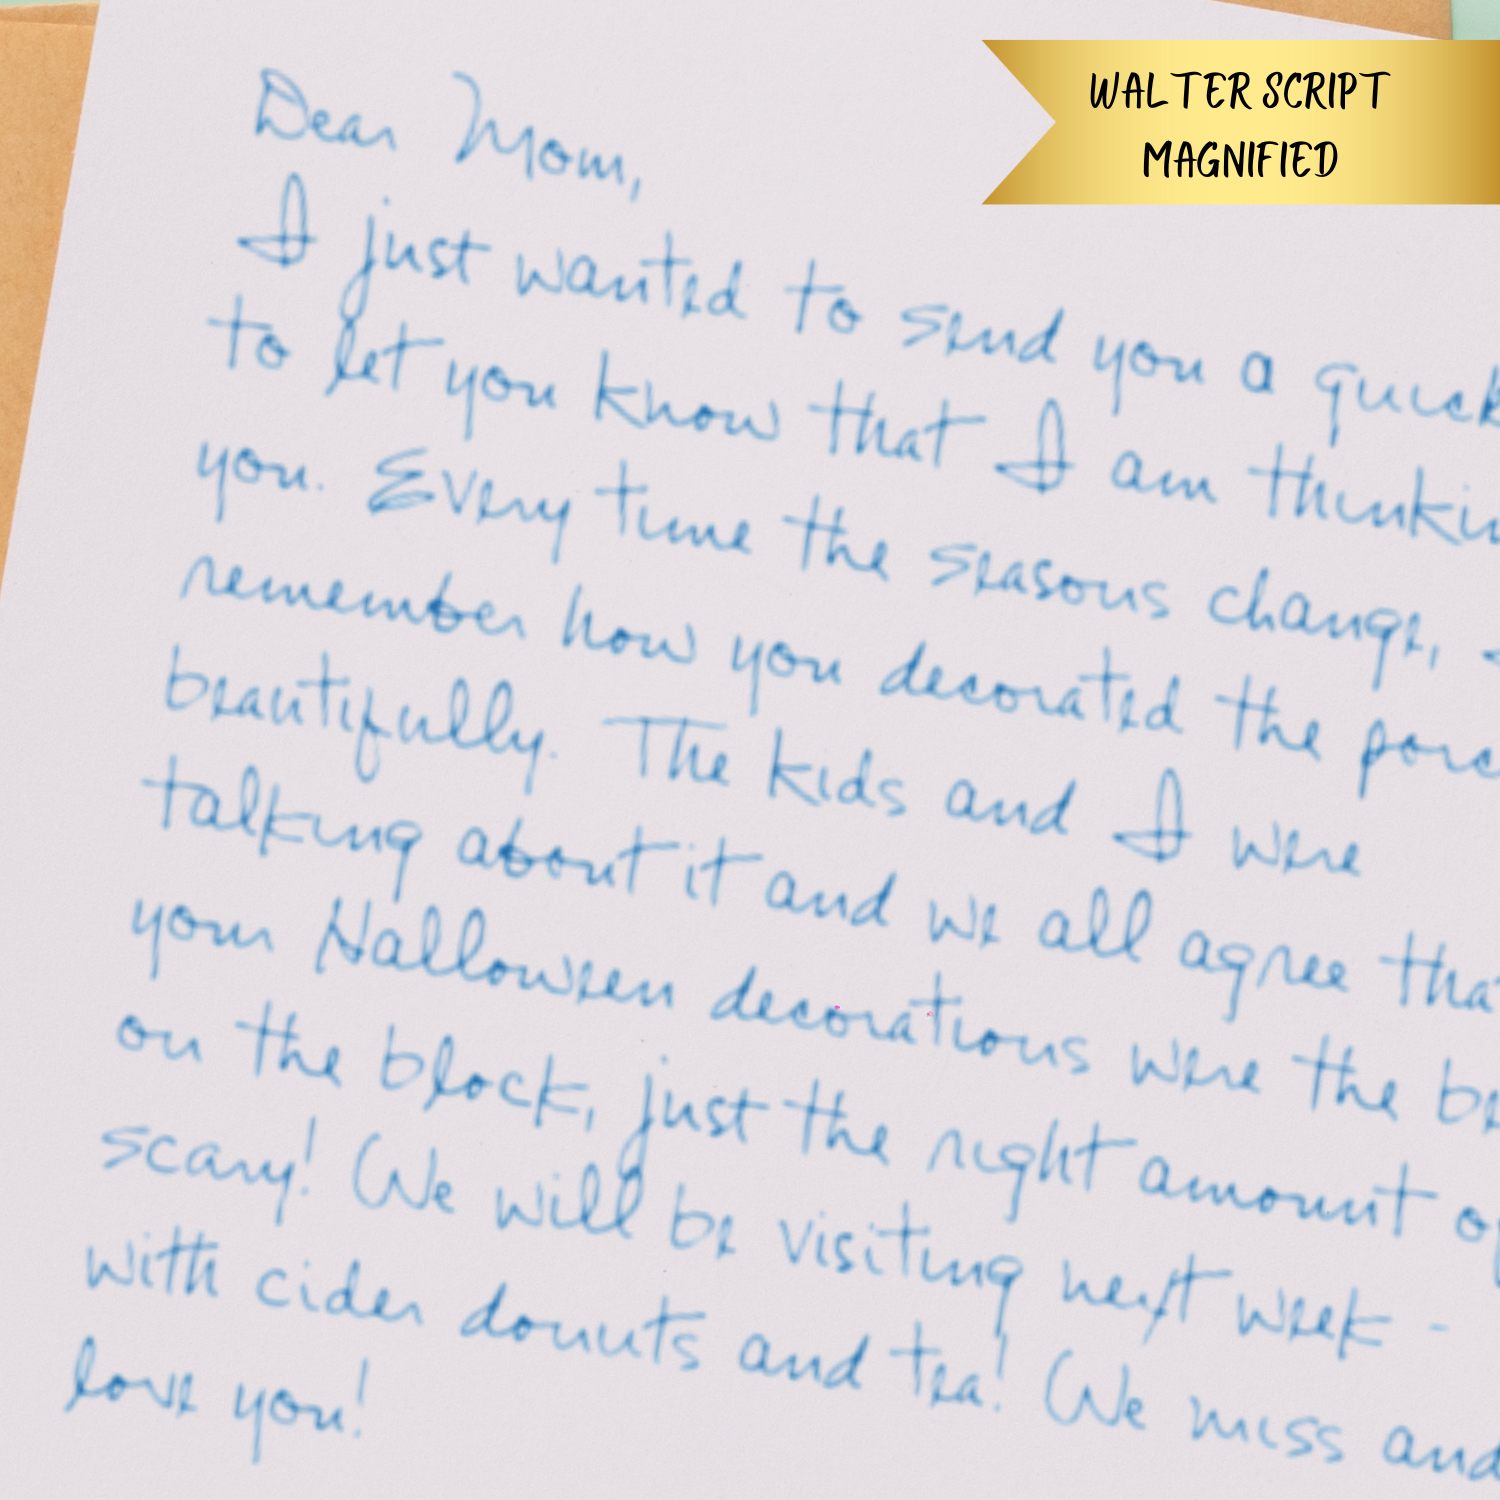 WALTER SCRIPT
MAGNIFIED
Dear Mom,
I just wanted to send you a quick
to let you know that I am thinkin
you. Every time the seasons change,
remember how you decorated the porc
beautifully. The kids and I were
talking about it and we all agree that
your Halloween decorations were the be
on the block, just the right amount of
scary! We will be visiting next week -
with cider donuts and tea! We miss and
love you!